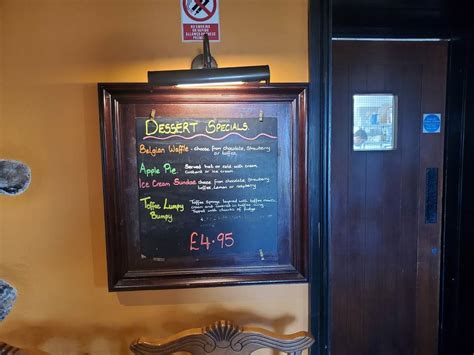 NO SMOKING
DESSERT SPECIALS.
Belgian Waffle - choose from chocolate, strawberry
or toffee.
Apple Pie. Served hot or cold with cream
custard or ice cream
Ice Cream Sundae choose from chocolate, strawberry
toffee, lemon or raspberry
Toffee Lumpy Toffee Sponge layered with toffee
Bumpy cream and covered in toffee icing
Topped with chunks of fudge
£4.95